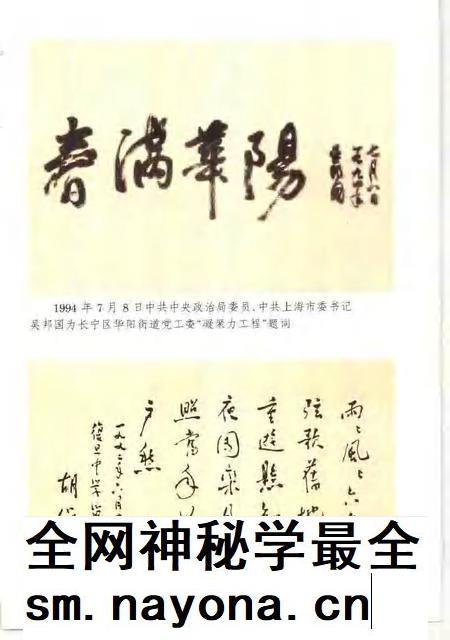 春满华阳
七月八日
一九九四年
吴邦国
1994 年 7 月 8 日中共中央政治局委员、中共上海市委书记
吴邦国为长宁区华阳街道党工委“凝聚力工程”题词
雨雨风风六
弦歌旧地
重游悬
夜阑
照当年
户愁
一九九二年六月
复旦中学
胡
全网神秘学最全
sm.nayona.cn